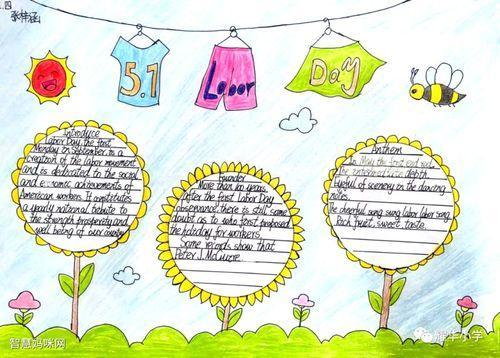 四
张梓涵
5.1
Labor
Day
Introduce
Labor Day, the first
Monday in September is a
creation of the labor movement
and is dedicated to the social
and economic achievements of
American workers. It constitutes
a yearly national tribute to
the strength, prosperity and
well being of our country
Founder
More than 100 years
After the first Labor Day
observance, there is still some
doubt as to who first proposed
the holiday for workers.
Some records show that
Peter J. McGuire
Anthem
In May the first red
The intermediate depth
Eyeful of scenery in the dancing
notes.
The cheerful song sung labor labor song
Rich fruit, sweet taste.
智慧妈咪网
小学